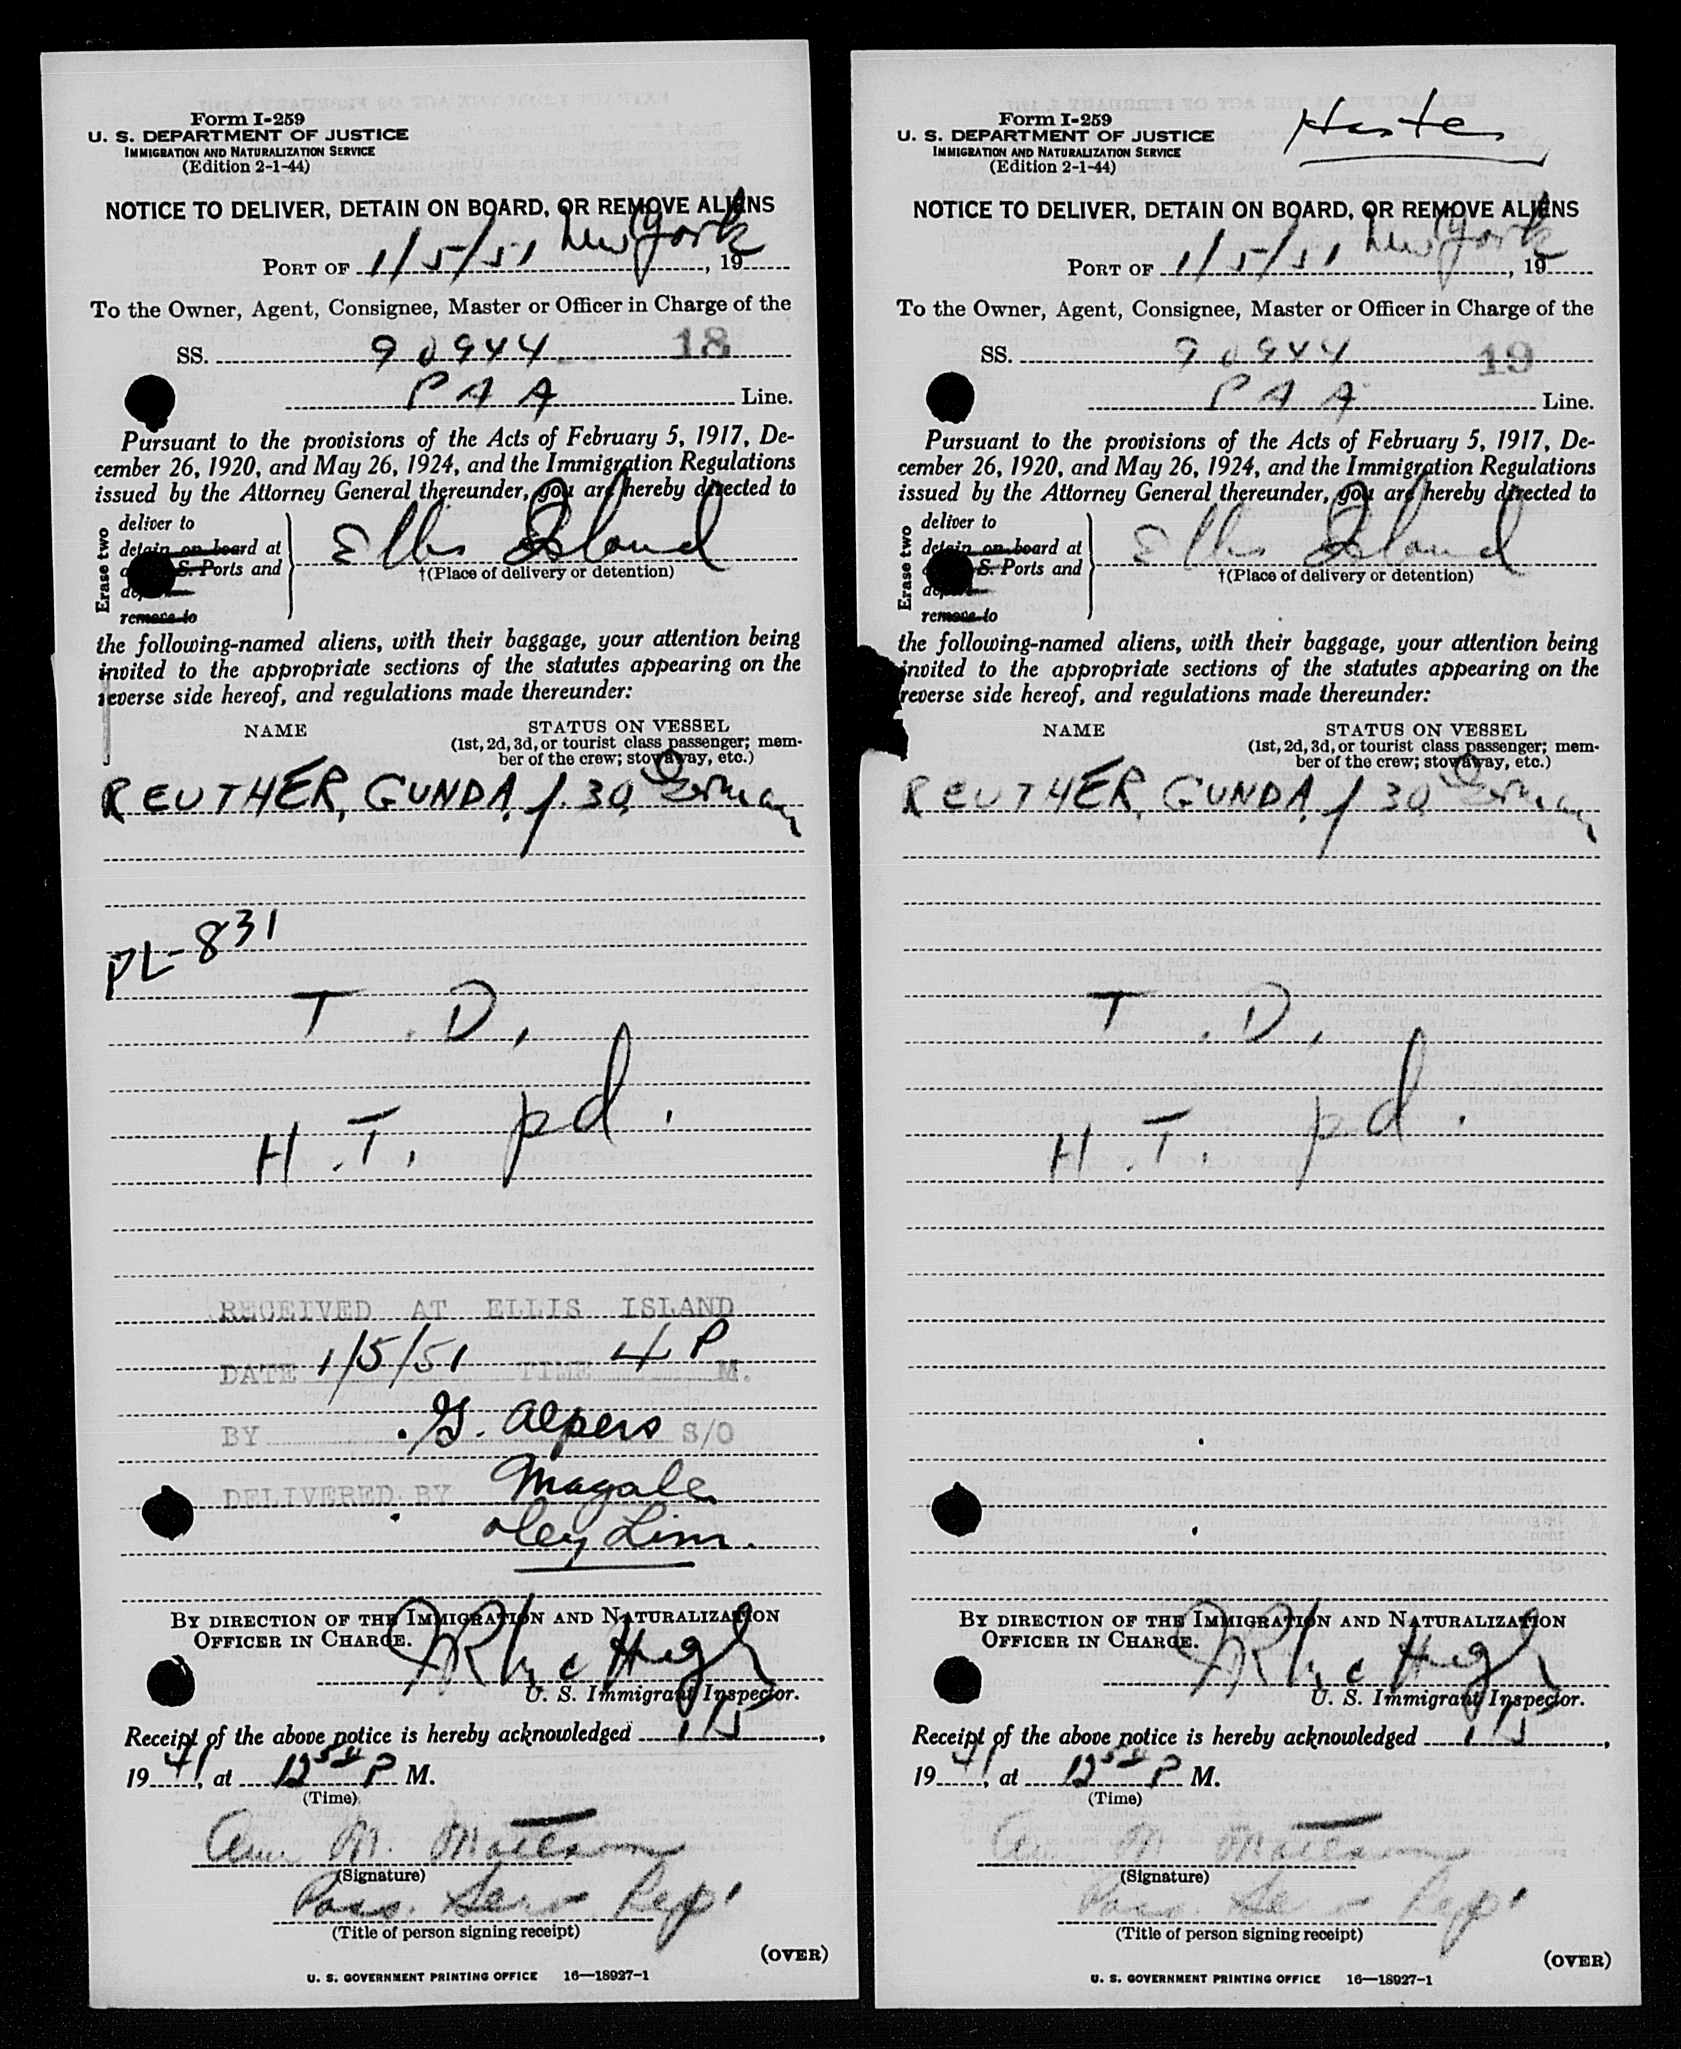 Form I-259
U. S. DEPARTMENT OF JUSTICE
IMMIGRATION AND NATURALIZATION SERVICE
(Edition 2-1-44)
NOTICE TO DELIVER, DETAIN ON BOARD, OR REMOVE ALIENS
PORT OF 1/5/51 New York, 19
To the Owner, Agent, Consignee, Master or Officer in Charge of the
SS. 90944 18
PAA Line.
Pursuant to the provisions of the Acts of February 5, 1917, De-
cember 26, 1920, and May 26, 1924, and the Immigration Regulations
issued by the Attorney General thereunder, you are hereby directed to
Erase two
deliver to
detain on board at
S. Ports and
remove to
Ellis Island
†(Place of delivery or detention)
the following-named aliens, with their baggage, your attention being
invited to the appropriate sections of the statutes appearing on the
reverse side hereof, and regulations made thereunder:
NAME STATUS ON VESSEL
(1st, 2d, 3d, or tourist class passenger; mem-
ber of the crew; stowaway, etc.)
REUTHER, GUNDA. f. 30 German
PL-831
T. D.
H.T. pd.
RECEIVED AT ELLIS ISLAND
DATE 1/5/51 TIME 4 P M.
BY G. Alpers S/O
DELIVERED BY
BY DIRECTION OF THE IMMIGRATION AND NATURALIZATION
OFFICER IN CHARGE.
U. S. Immigrant Inspector.
Receipt of the above notice is hereby acknowledged 1/5,
19 , at 12 P M.
(Time)
Ann M. Matteson
(Signature)
Pass. Serv Rep.
(Title of person signing receipt)
(OVER)
U. S. GOVERNMENT PRINTING OFFICE 16—18927-1
Form I-259
U. S. DEPARTMENT OF JUSTICE
IMMIGRATION AND NATURALIZATION SERVICE
(Edition 2-1-44)
NOTICE TO DELIVER, DETAIN ON BOARD, OR REMOVE ALIENS
PORT OF 1/5/51 New York, 19
To the Owner, Agent, Consignee, Master or Officer in Charge of the
SS. 90944 19
PAA Line.
Pursuant to the provisions of the Acts of February 5, 1917, De-
cember 26, 1920, and May 26, 1924, and the Immigration Regulations
issued by the Attorney General thereunder, you are hereby directed to
Erase two
deliver to
detain on board at
S. Ports and
remove to
Ellis Island
†(Place of delivery or detention)
the following-named aliens, with their baggage, your attention being
invited to the appropriate sections of the statutes appearing on the
reverse side hereof, and regulations made thereunder:
NAME STATUS ON VESSEL
(1st, 2d, 3d, or tourist class passenger; mem-
ber of the crew; stowaway, etc.)
REUTHER, GUNDA. f 30 German
T. D.
H.T. pd.
BY DIRECTION OF THE IMMIGRATION AND NATURALIZATION
OFFICER IN CHARGE.
U. S. Immigrant Inspector.
Receipt of the above notice is hereby acknowledged 1/5,
19 , at 12 P M.
(Time)
(Signature)
Pass. Rep.
(Title of person signing receipt)
(OVER)
U. S. GOVERNMENT PRINTING OFFICE 16—18927-1